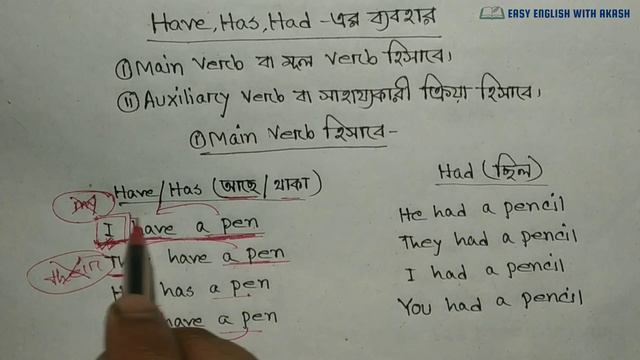 EASY ENGLISH WITH AKASH
Have, Has, Had - এর ব্যবহার
(i) Main Verb বা মূল Verb হিসাবে।
(ii) Auxiliary Verb বা সাহায্যকারী ক্রিয়া হিসাবে।
(i) Main Verb হিসাবে -
Have/Has (আছে/থাকা)
I have a pen
have a pen
has a pen
have a pen
Had (ছিল)
He had a pencil
They had a pencil
I had a pencil
You had a pencil